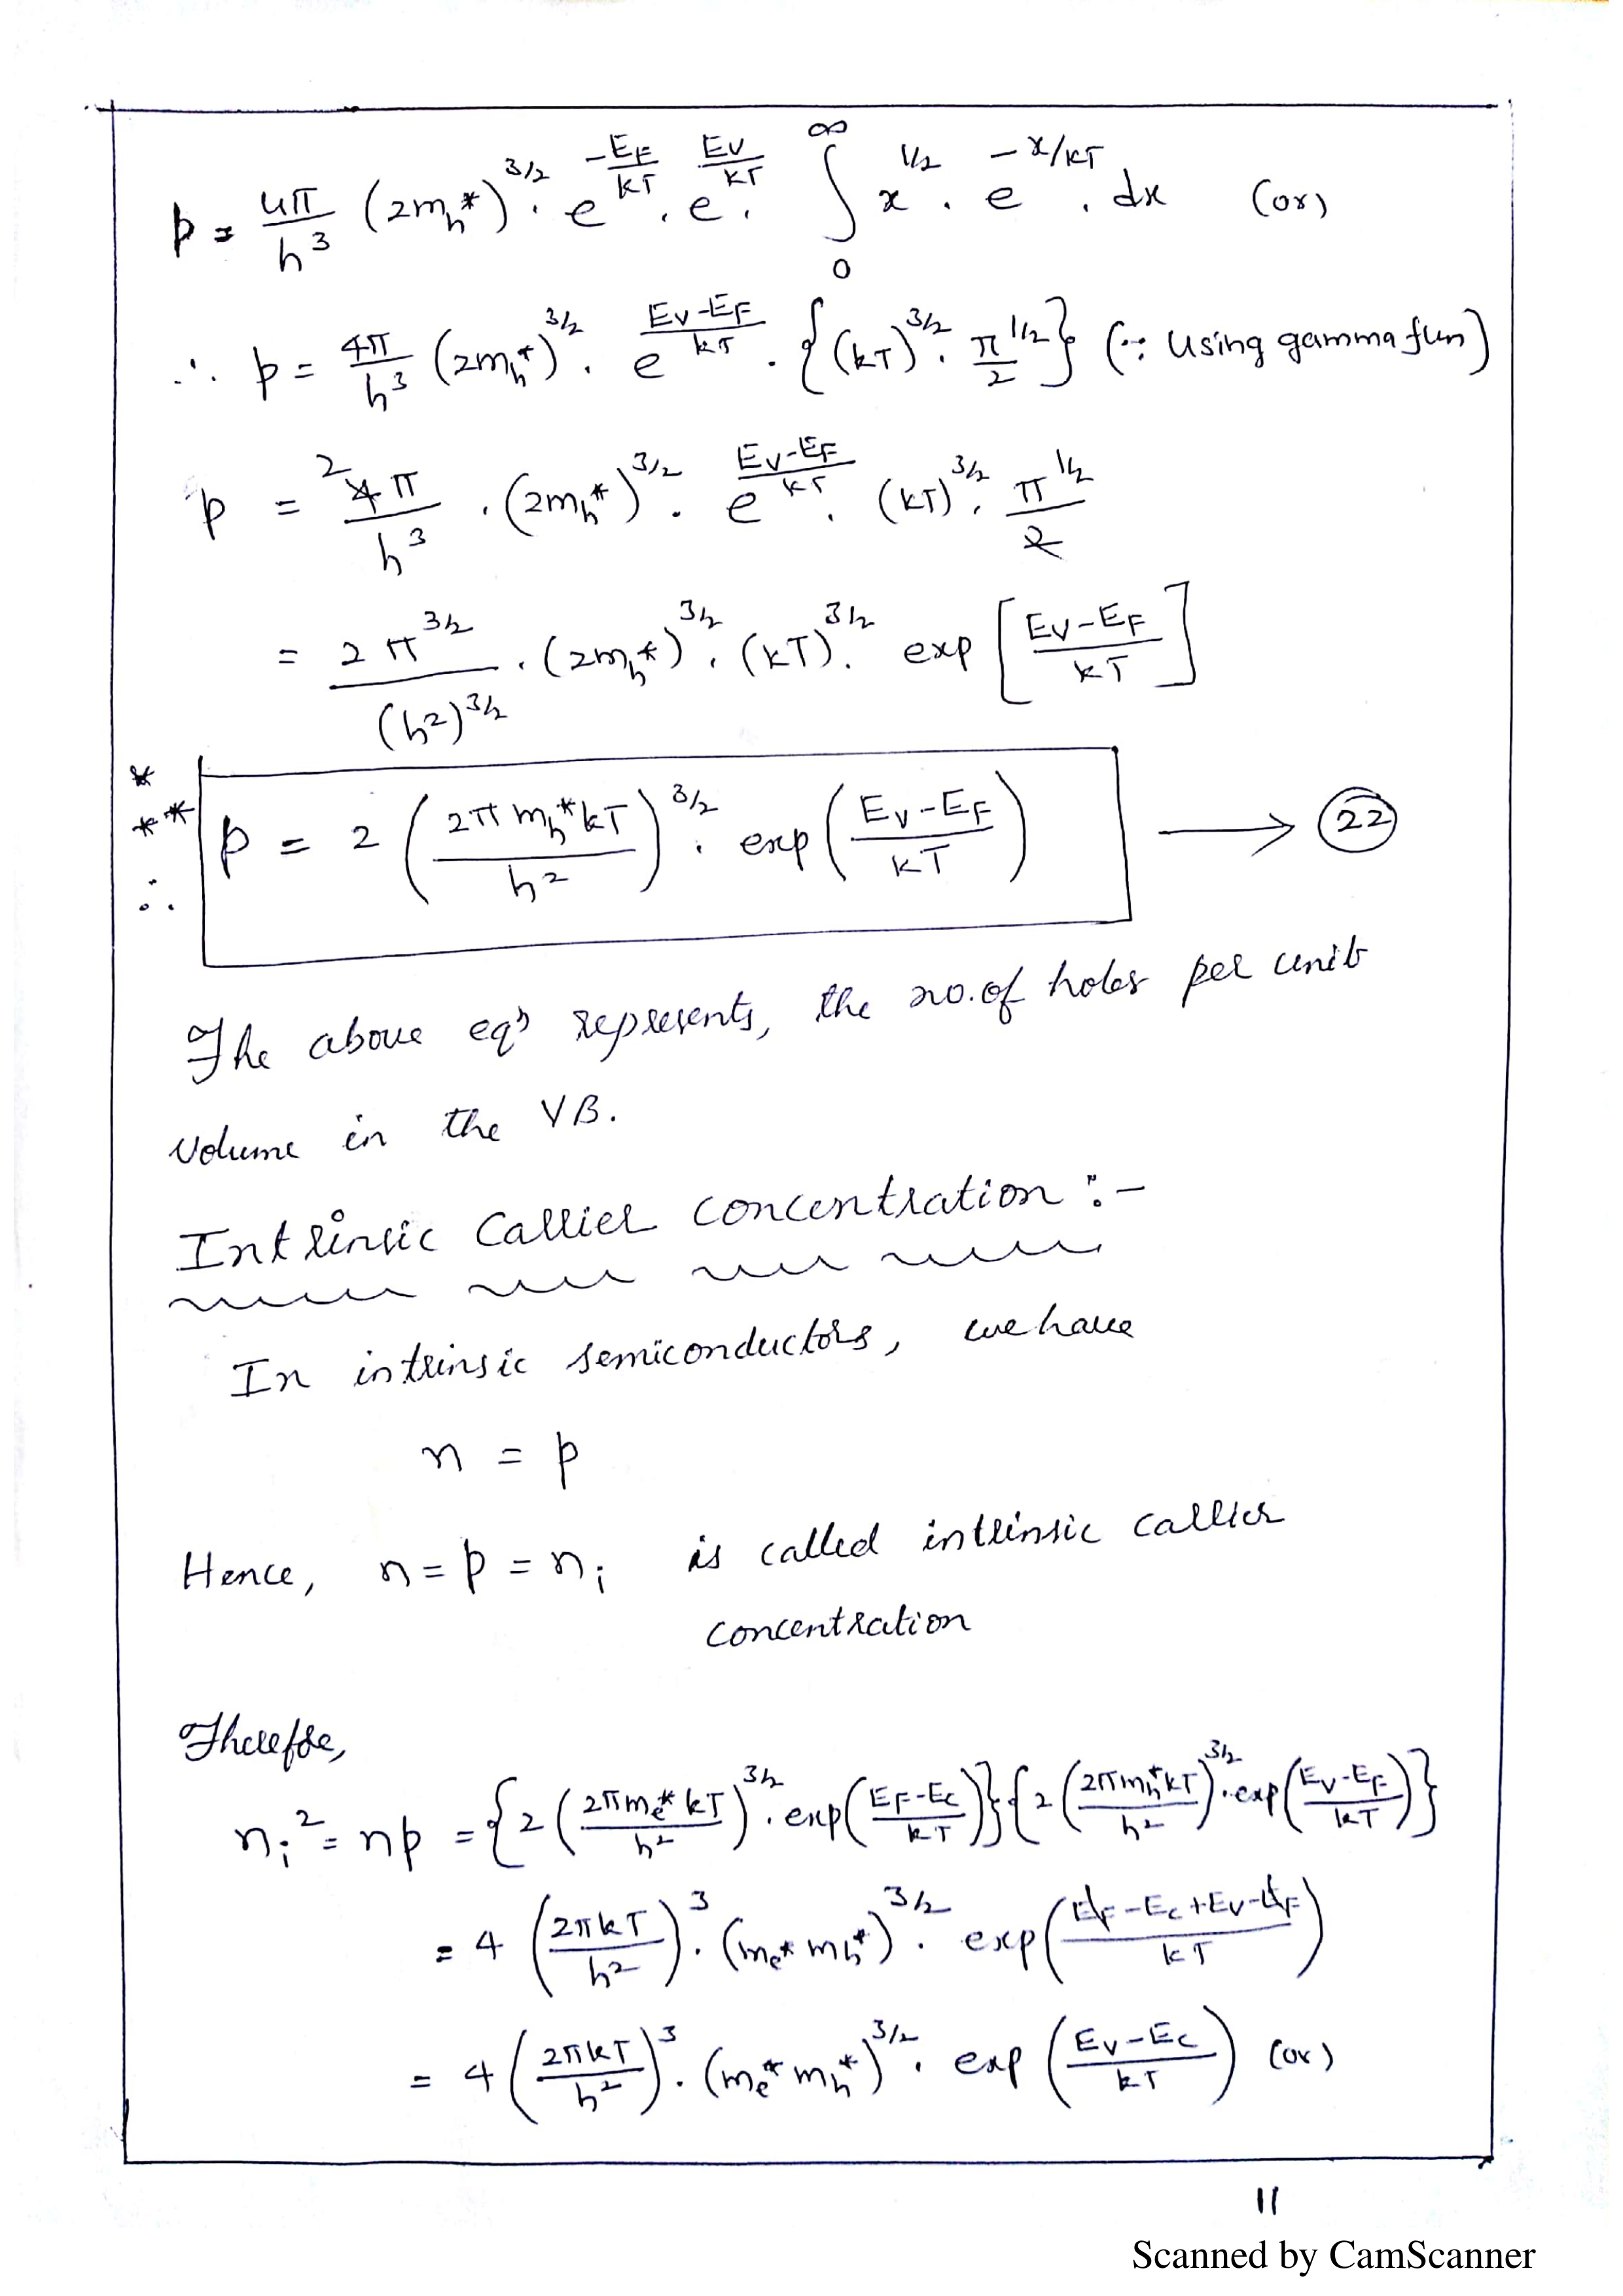 p = 4π/h³ (2mh*)^3/2 . e^(-EF/kT) . e^(EV/kT) . ∫₀^∞ x^1/2 . e^(-x/kT) . dx (or)
∴ p = 4π/h³ (2mh*)^3/2 . e^((EV-EF)/kT) . {(kT)^3/2 . π^1/2/2} (∵ using gamma fun)
p = ²4π/h³ . (2mh*)^3/2 . e^((EV-EF)/kT) . (kT)^3/2 . π^1/2/2
= 2π^3/2/(h²)^3/2 . (2mh*)^3/2 . (kT)^3/2 . exp[(EV-EF)/kT]
*** ∴ p = 2 (2π mh* kT/h²)^3/2 . exp((EV-EF)/kT) → (22)
The above eqn represents, the no.of holes per unit
volume in the VB.
Intrinsic Carrier Concentration :-
In intrinsic semiconductors, we have
n = p
Hence, n = p = ni is called intrinsic carrier
concentration
Therefore,
ni² = np = {2(2πme*kT/h²)^3/2 . exp((EF-EC)/kT)}{2(2πmh*kT/h²)^3/2 . exp((EV-EF)/kT)}
= 4 (2πkT/h²)³ . (me* mh*)^3/2 . exp((EF-Ec+EV-EF)/kT)
= 4 (2πkT/h²)³ . (me* mh*)^3/2 . exp((EV-EC)/kT) (or)
11
Scanned by CamScanner